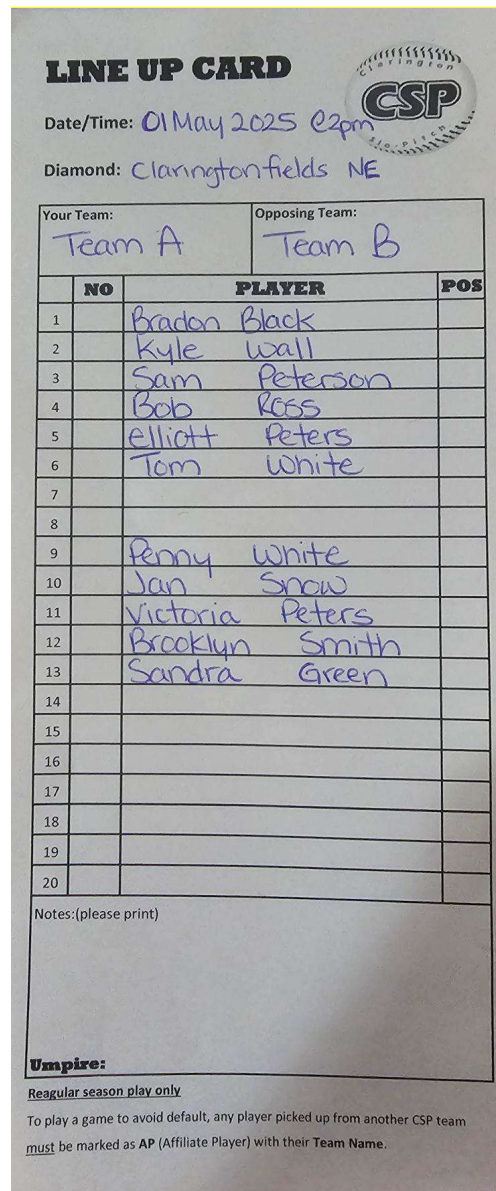 LINE UP CARD
Clarington
CSP
Slo-Pitch
Date/Time: 01 May 2025 @2pm
Diamond: Claringtonfields NE
Your Team: Opposing Team:
Team A Team B
NO PLAYER POS
1 Bradon Black
2 Kyle Wall
3 Sam Peterson
4 Bob Ross
5 elliott Peters
6 Tom White
7
8
9 Penny White
10 Jan Snow
11 Victoria Peters
12 Brooklyn Smith
13 Sandra Green
14
15
16
17
18
19
20
Notes:(please print)
Umpire:
Reagular season play only
To play a game to avoid default, any player picked up from another CSP team
must be marked as AP (Affiliate Player) with their Team Name.